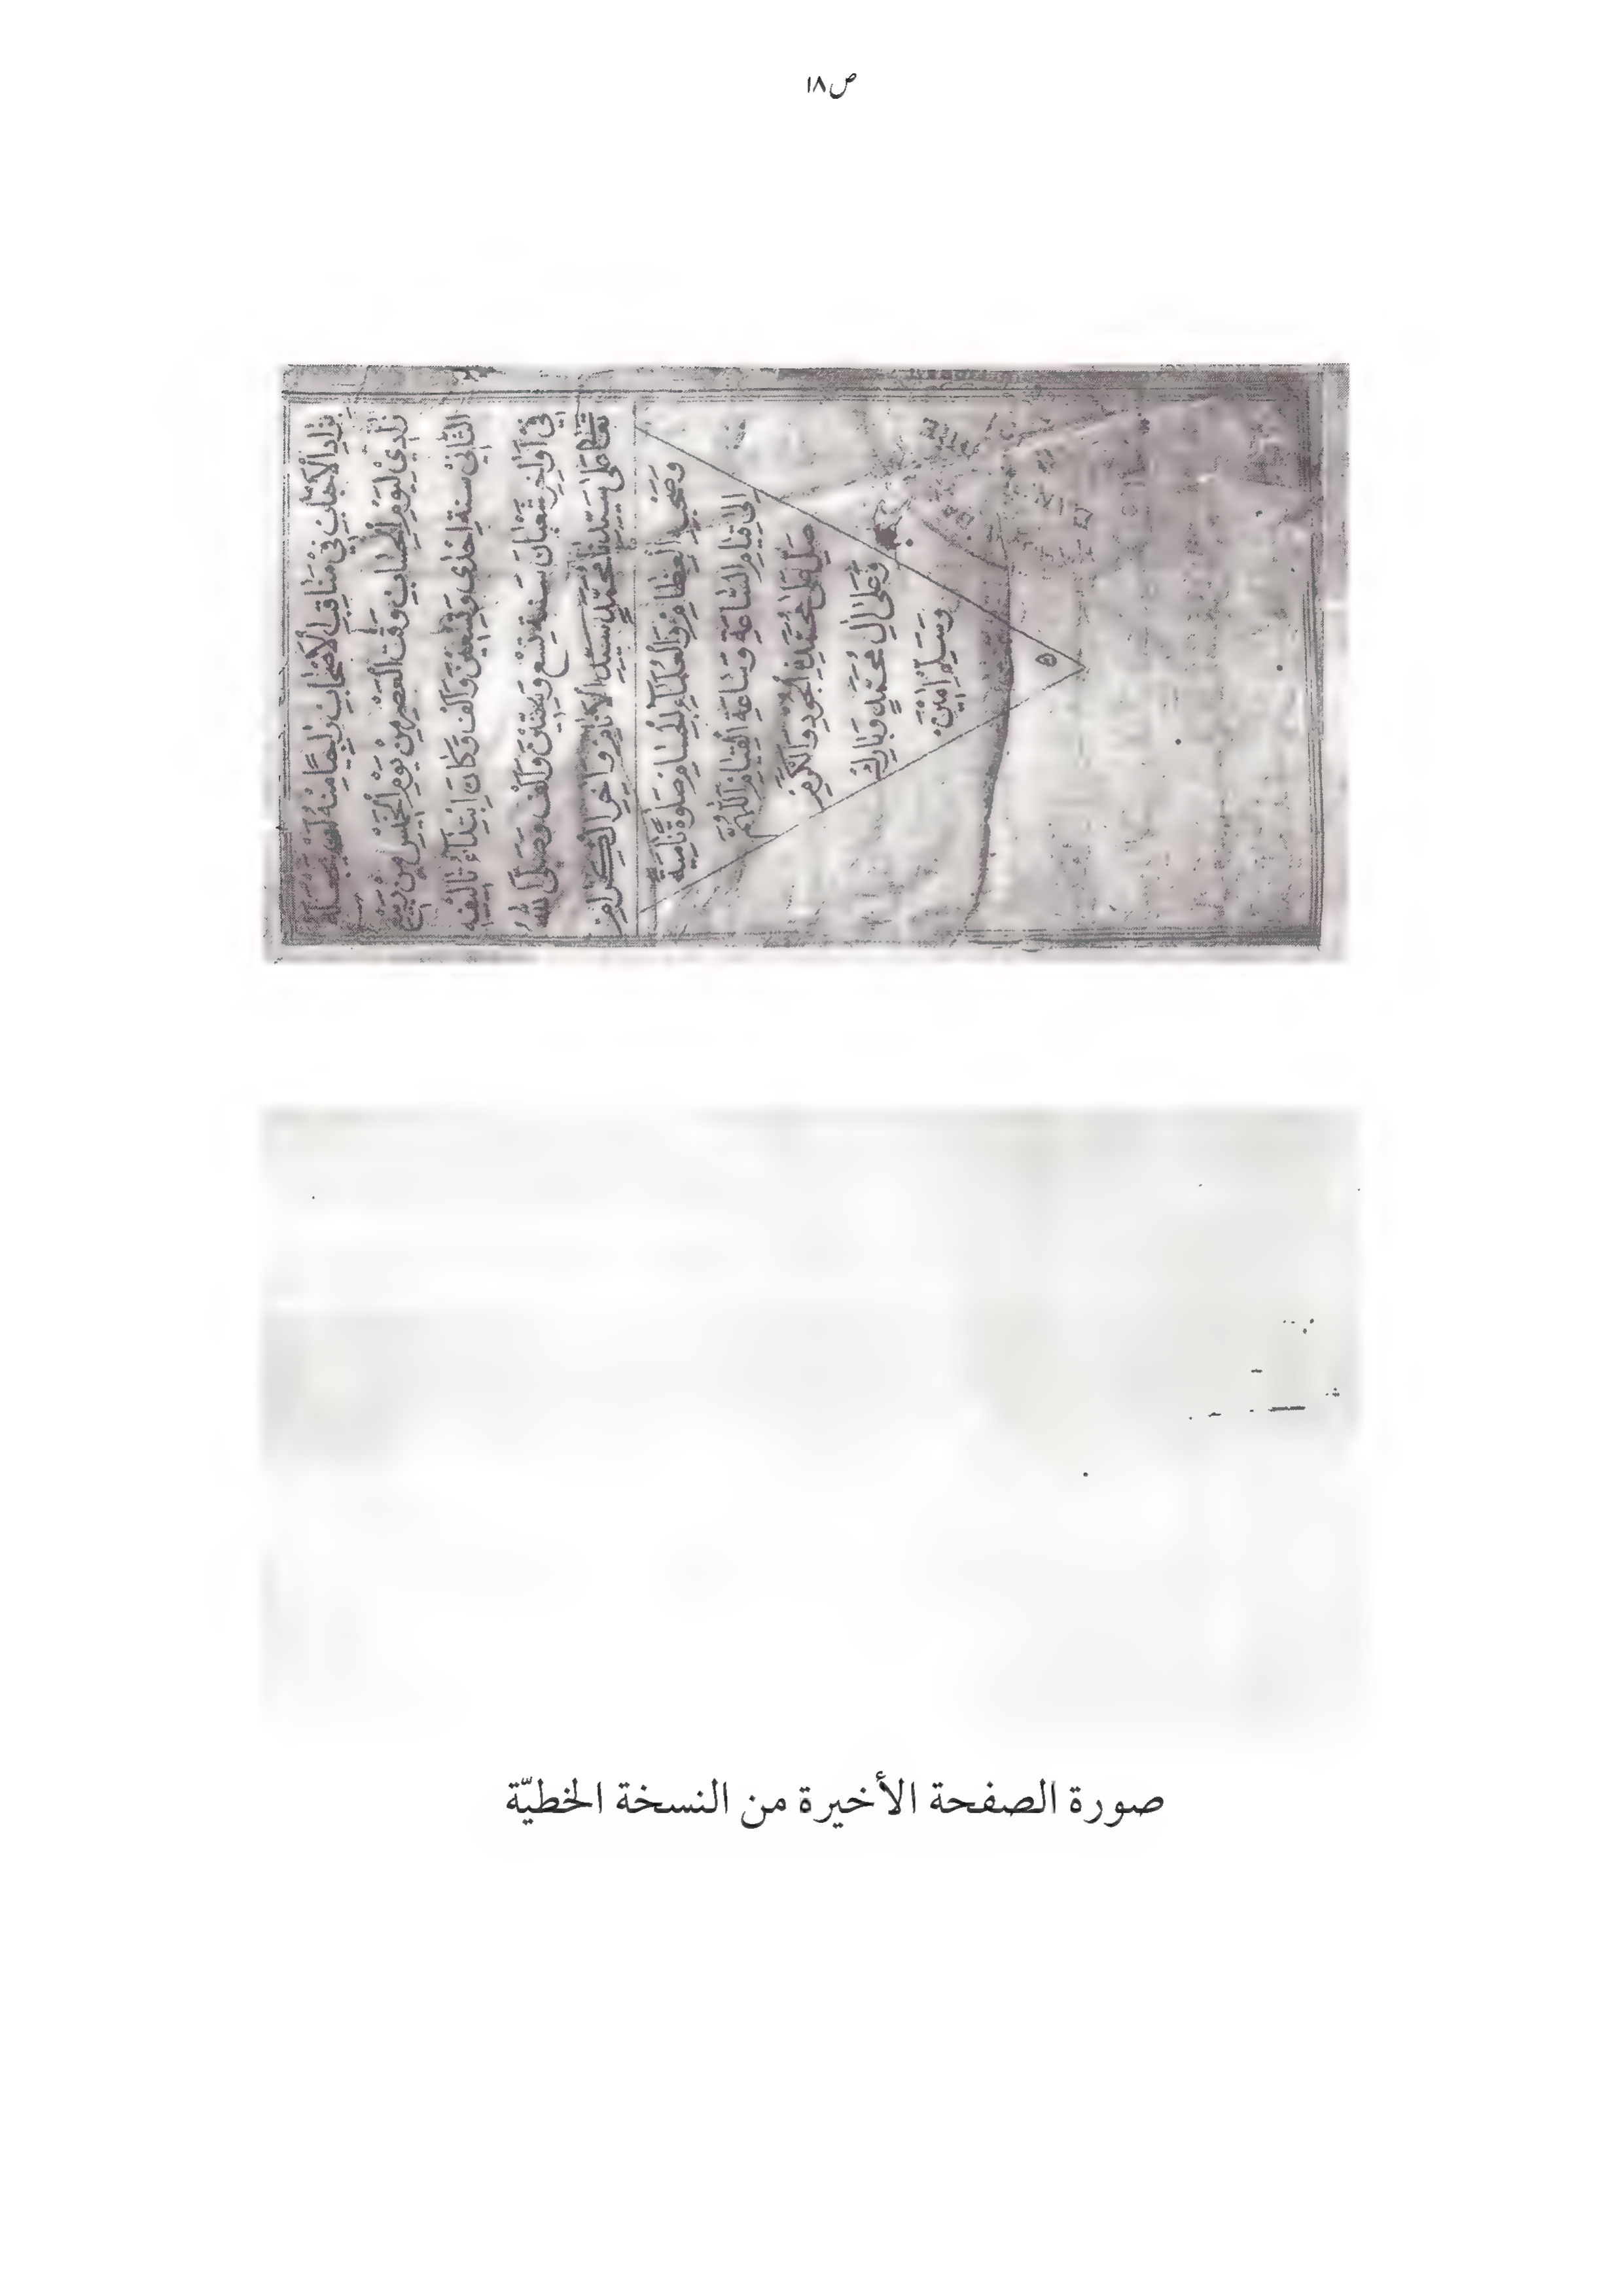 ص١٨
بزاد الأحباب في مناقب الأصحاب راجيا منه أن يجعله
زادي ليوم الحساب وقت العصر من يوم الخميس من ربيع
الثاني سنة احدى وتسعين وألف وكان ابتداء تأليفه
في أواخر شعبان سنة تسع وستين وألف وصلى الله
تعالى على سيدنا محمد سيد الأنام واخر الكرام
وصحبه العظام والعلماء الفخام صلوة نامية
الى قيام الساعة وساعة القيام اللهم
صل على محمد الجود والكرم
وعلى ال محمد وبارك
وسلم امين
صورة الصفحة الأخيرة من النسخة الخطيّة